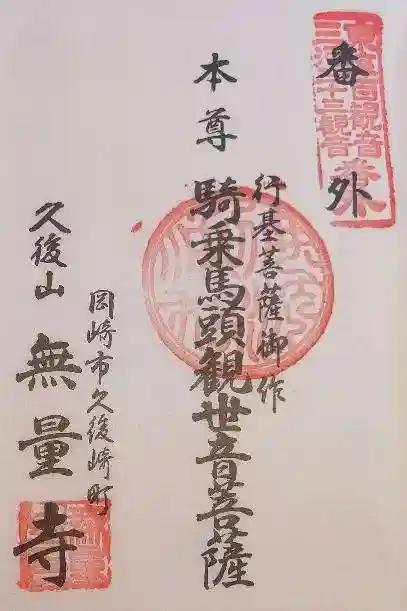 番外
東海百観音
三河三十三観音
番外
本尊
行基菩薩御作
騎乗馬頭観世音菩薩
岡崎市久後崎町
久後山
無量寺